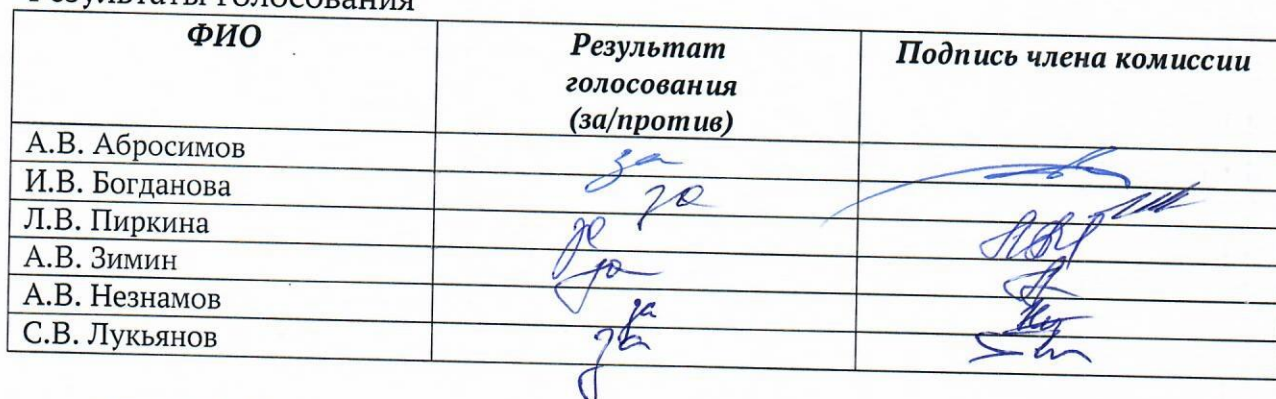 Результаты голосования
ФИО
Результат голосования (за/против)
Подпись члена комиссии
А.В. Абросимов за
И.В. Богданова за
Л.В. Пиркина за
А.В. Зимин за
А.В. Незнамов за
С.В. Лукьянов за